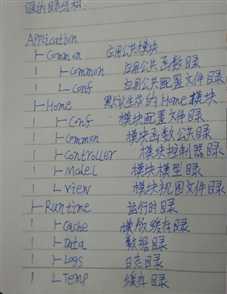 的目录结构.
Application
├Common 应用公共模块
| ├Common 应用公共函数目录
| └Conf 应用公共配置文件目录
├Home 默认生成的Home模块
| ├Conf 模块配置文件目录
| ├Common 模块函数公共目录
| ├Controller 模块控制器目录
| ├Model 模块模型目录
| └View 模块视图文件目录
├Runtime 运行时目录
| ├Cache 模版缓存目录
| ├Data 数据目录
| ├Logs 日志目录
| └Temp 缓存目录